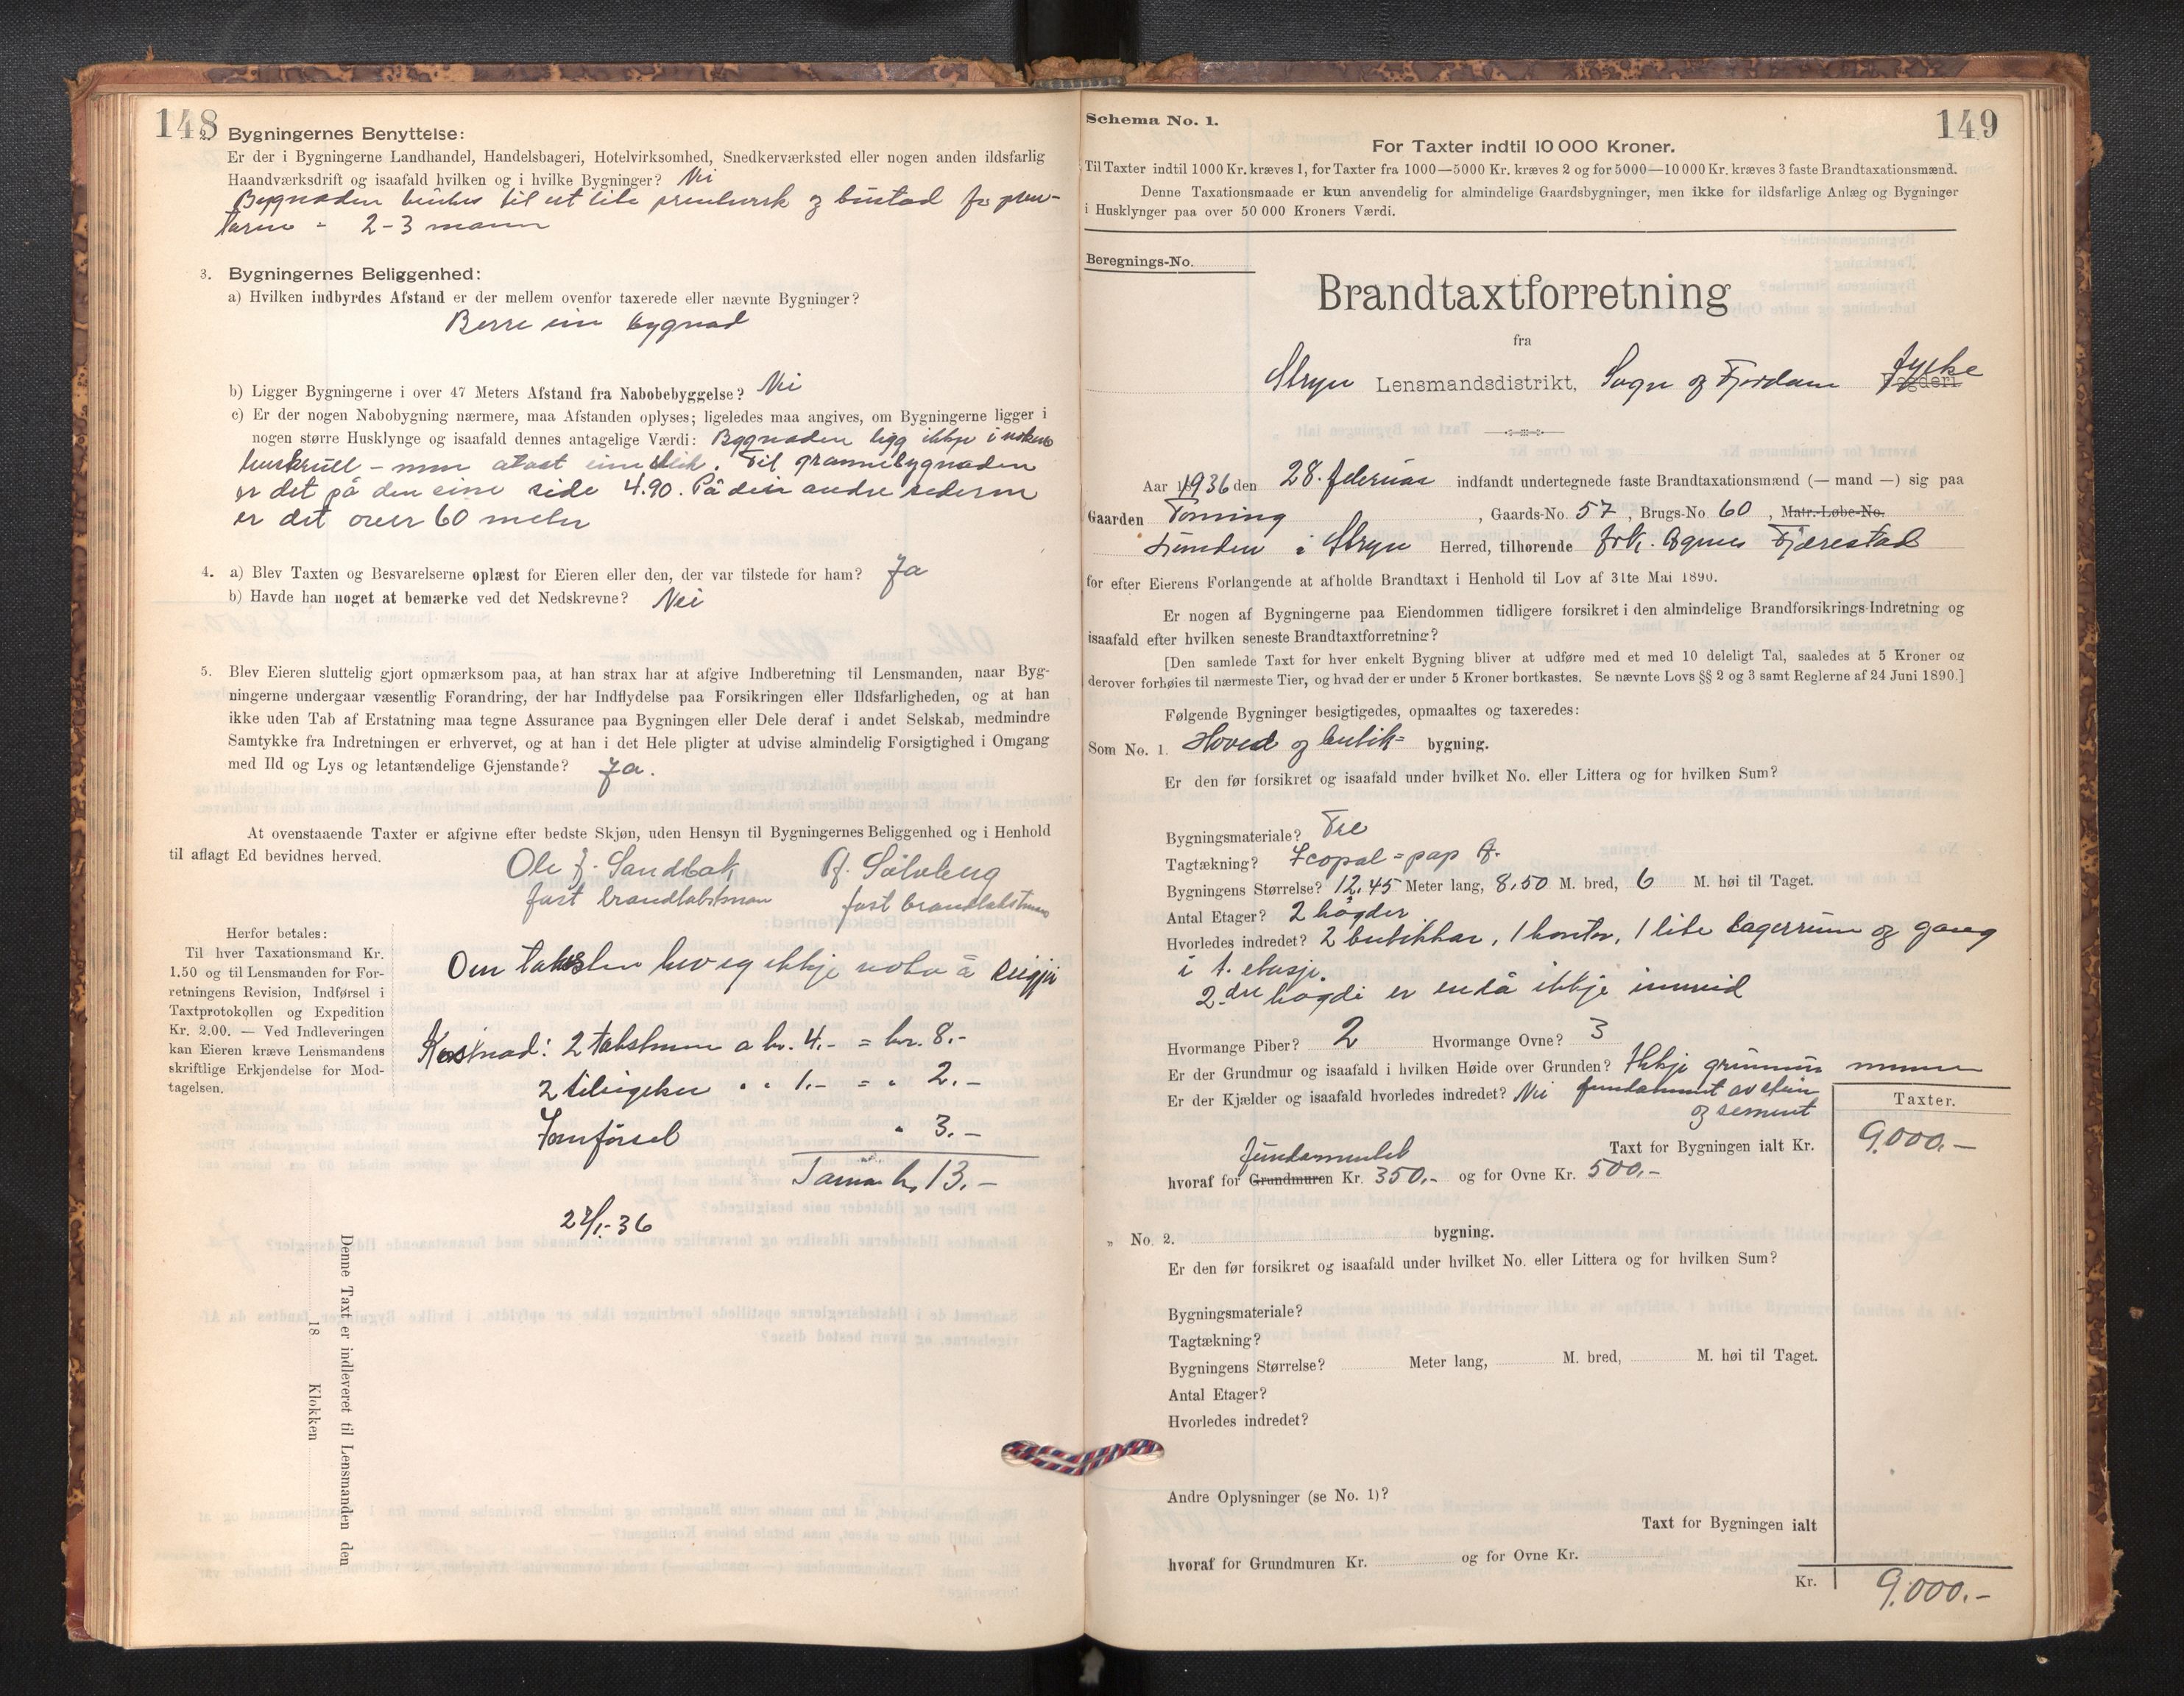 148
2. Bygningernes Benyttelse:
Er der i Bygningerne Landhandel, Handelsbageri, Hotelvirksomhed, Snedkerværksted eller nogen anden ildsfarlig
Haandværksdrift og isaafald hvilken og i hvilke Bygninger? Nei
Bygnaden til eit lite prenteverk og bustad for pren-
tarne - 2-3 mann
3. Bygningernes Beliggenhed:
a) Hvilken indbyrdes Afstand er der mellem ovenfor taxerede eller nævnte Bygninger?
Berre ein bygnad
b) Ligger Bygningerne i over 47 Meters Afstand fra Nabobebyggelse? Nei
c) Er der nogen Nabobygning nærmere, maa Afstanden oplyses; ligeledes maa angives, om Bygningerne ligger i
nogen større Husklynge og isaafald dennes antagelige Værdi: Bygnaden ligg ikkje i noken
huskrull - men attåt ein slik. Til grannebygnaden
er det på den eine side 4.90. På dei andre siderne
er det over 60 meter
4. a) Blev Taxten og Besvarelserne oplæst for Eieren eller den, der var tilstede for ham? Ja
b) Havde han noget at bemærke ved det Nedskrevne? Nei
5. Blev Eieren sluttelig gjort opmærksom paa, at han strax har at afgive Indberetning til Lensmanden, naar Byg-
ningerne undergaar væsentlig Forandring, der har Indflydelse paa Forsikringen eller Ildsfarligheden, og at han
ikke uden Tab af Erstatning maa tegne Assurance paa Bygningen eller Dele deraf i andet Selskab, medmindre
Samtykke fra Indretningen er erhvervet, og at han i det Hele pligter at udvise almindelig Forsigtighed i Omgang
med Ild og Lys og letantændelige Gjenstande? Ja.
At ovenstaaende Taxter er afgivne efter bedste Skjøn, uden Hensyn til Bygningernes Beliggenhed og i Henhold
til aflagt Ed bevidnes herved.
Ole J. Sandbak Sølvberg
fast brandtakstman fast brandtakstman
Herfor betales:
Til hver Taxationsmand Kr.
1.50 og til Lensmanden for For-
retningens Revision, Indførsel i
Taxtprotokollen og Expedition
Kr. 2.00. — Ved Indleveringen
kan Eieren kræve Lensmandens
skriftlige Erkjendelse for Mod-
tagelsen.
Om taksten hev eg ikkje noko å
Kostnad: 2 takstmenn a kr. 4.- = kr. 8.-
2 " " 1.- = " 2.-
Innførsel " 3.-
Saman kr. 13.-
-36
Denne Taxt er indleveret til Lensmanden den
18 Klokken
149
Schema No. 1.
For Taxter indtil 10 000 Kroner.
Til Taxter indtil 1000 Kr. kræves 1, for Taxter fra 1000—5000 Kr. kræves 2 og for 5000—10 000 Kr. kræves 3 faste Brandtaxationsmænd.
Denne Taxationsmaade er kun anvendelig for almindelige Gaardsbygninger, men ikke for ildsfarlige Anlæg og Bygninger
i Husklynger paa over 50 000 Kroners Værdi.
Beregnings-No.
Brandtaxtforretning
fra
Stryn Lensmandsdistrikt, Sogn og Fjordane fylke Fogderi
Aar 1936 den 28. februar indfandt undertegnede faste Brandtaxationsmænd (— mand —) sig paa
Gaarden Tonning , Gaards-No. 57 , Brugs-No 60 , Matr.-Løbe-No.
Sunden i Stryn Herred, tilhørende frk. Agnes Fjærestad
for efter Eierens Forlangende at afholde Brandtaxt i Henhold til Lov af 31te Mai 1890.
Er nogen af Bygningerne paa Eiendommen tidligere forsikret i den almindelige Brandforsikrings-Indretning og
isaafald efter hvilken seneste Brandtaxtforretning?
[Den samlede Taxt for hver enkelt Bygning bliver at udføre med et med 10 deleligt Tal, saaledes at 5 Kroner og
derover forhøies til nærmeste Tier, og hvad der er under 5 Kroner bortkastes. Se nævnte Lovs §§ 2 og 3 samt Reglerne af 24 Juni 1890.]
Følgende Bygninger besigtigedes, opmaaltes og taxeredes:
Som No. 1. Hoved og butik= bygning.
Er den før forsikret og isaafald under hvilket No. eller Littera og for hvilken Sum?
Bygningsmateriale? Tre
Tagtækning? Icopal=pap A.
Bygningens Størrelse? 12.45 Meter lang, 8,50 M. bred, 6 M. høi til Taget.
Antal Etager? 2 høgder
Hvorledes indredet? 2 butikkar, 1 kontor, 1 lite lagerrum og gang
i 1. etasje.
2.dre høgdi er endå ikkje innreid
Hvormange Piber? 2 Hvormange Ovne? 3
Er der Grundmur og isaafald i hvilken Høide over Grunden? Ikkje grunnmur menn
Er der Kjælder og isaafald hvorledes indredet? Nei fundament av stein
og sement
Taxter.
Taxt for Bygningen ialt Kr. 9.000.-
fundamentet
hvoraf for Grundmuren Kr. 350.- og for Ovne Kr. 500.-
„ No. 2. bygning.
Er den før forsikret og isaafald under hvilket No. eller Littera og for hvilken Sum?
Bygningsmateriale?
Tagtækning?
Bygningens Størrelse? Meter lang, M. bred, M. høi til Taget.
Antal Etager?
Hvorledes indredet?
Andre Oplysninger (se No. 1)?
Taxt for Bygningen ialt
hvoraf for Grundmuren Kr. og for Ovne Kr.
Kr. 9.000.-